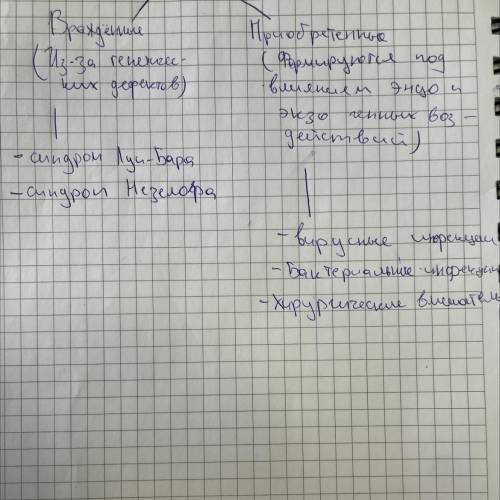 Врожденные
(Из-за генетичес-
ких дефектов)
- синдром Луи-Бара
- синдром Незелофа
Приобретенные
(Формируются под
влиянием эндо и
экзо генных воз-
действий)
- вирусные инфекции
- Бактериальные инфекции
- Хирургические вмешатель